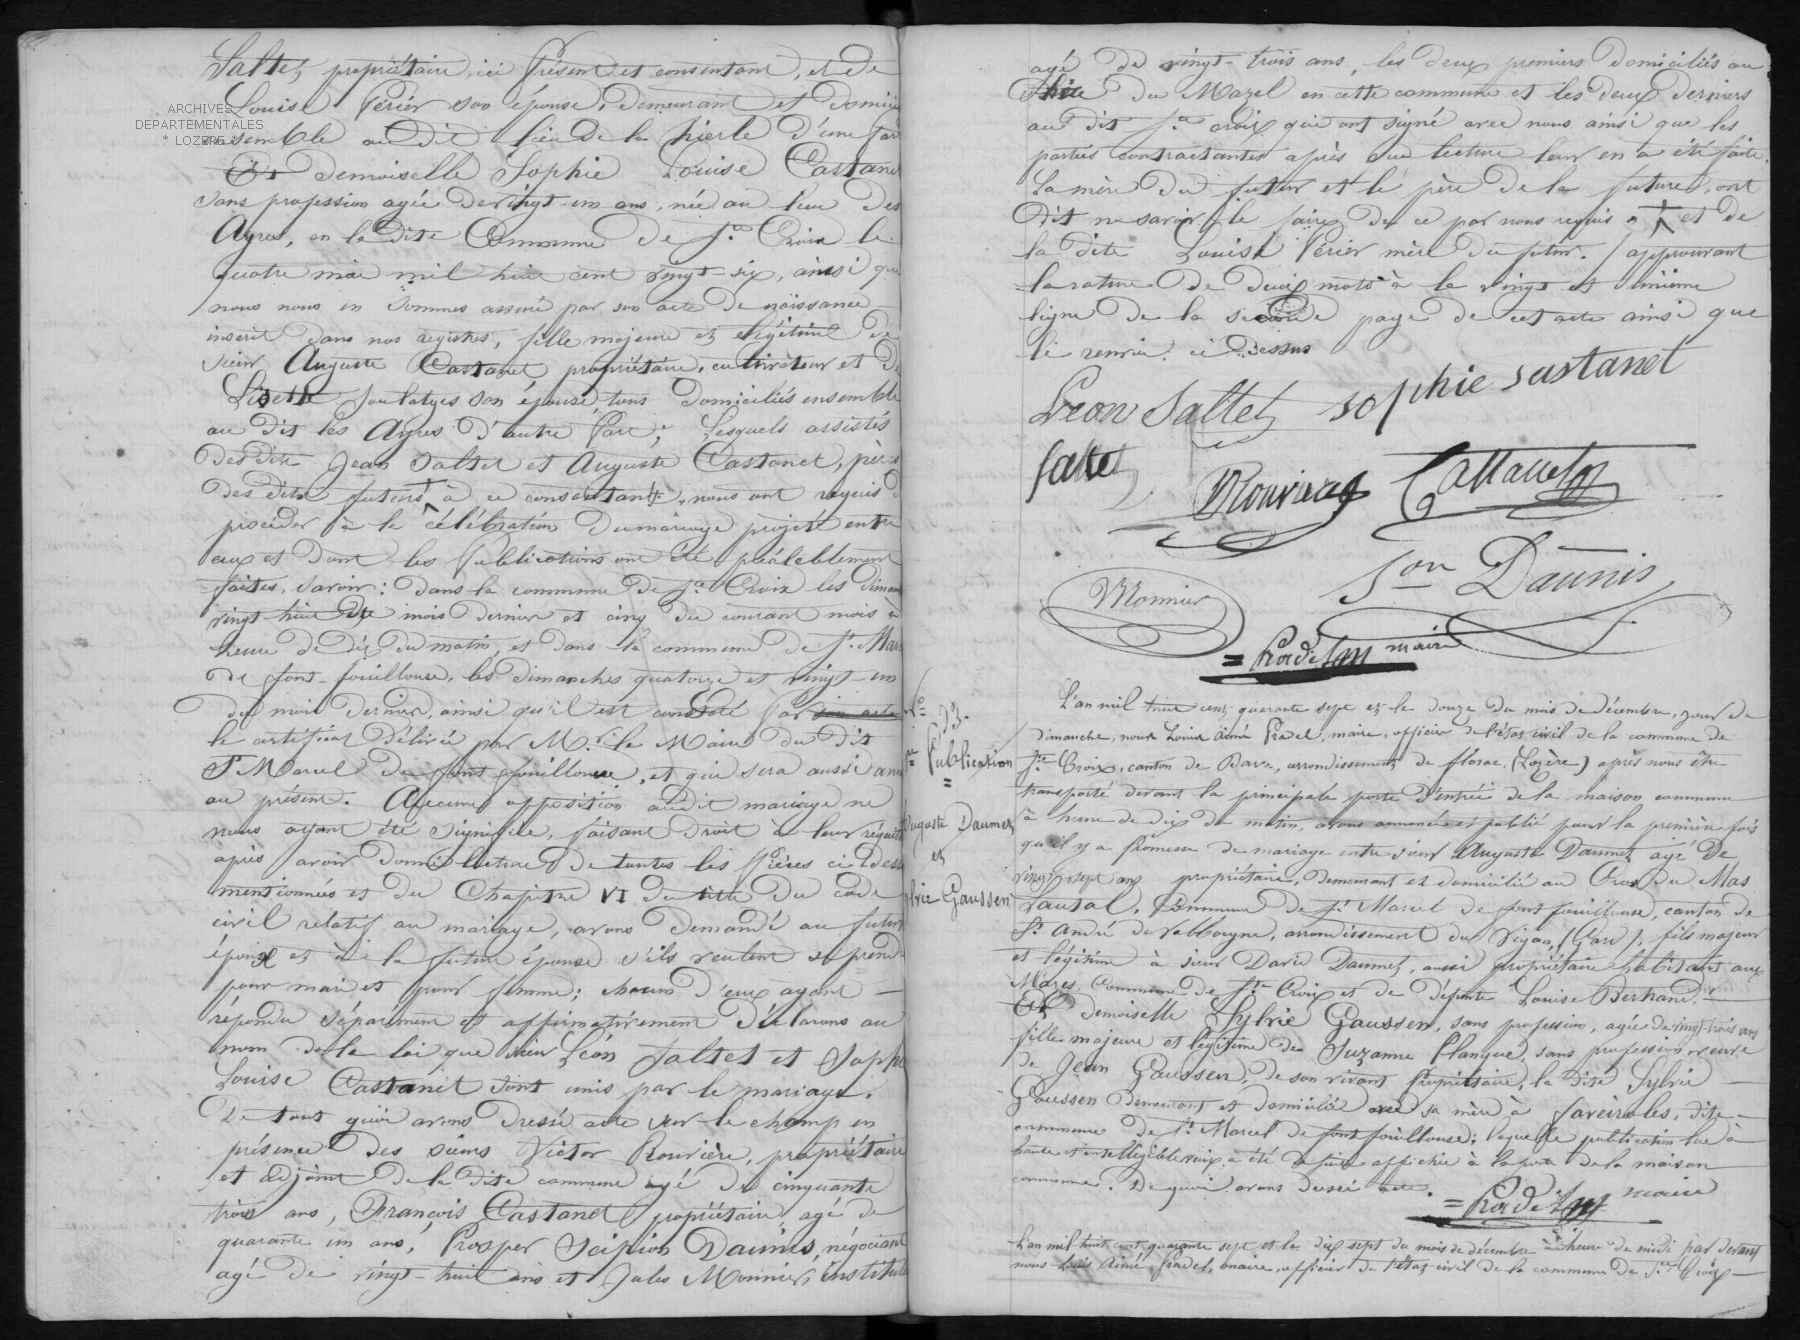 Saltet, propriétaire, ici présent et consentant, et de
Louise Périer son épouse, demeurant et domici
ARCHIVES
DEPARTEMENTALES
* LOZERE *
ensemble au dit lieu de la hierle d'une part
Et demoiselle Sophie Louise Castanet
sans profession agée de vingt-un ans, née au lieu des
Ayres, en la dite Commune de Ste Croix le
quatre mai mil huit cent vingt-six, ainsi que
nous nous en sommes assuré par son acte de naissance
inscrit dans nos registres, fille majeure et légitime de
sieur Auguste Castanet propriétaire, cultivateur et de
Lisette Soulatges son épouse, tous domiciliés ensemble
au dit les Ayres d'autre Part; Lesquels assistés
des dits Jean Saltet et Auguste Castanet, pères
des dits futurs à ce consentants, nous ont requis
procéder à la célébration du mariage projeté entre
eux et dont les Publications ont été préalablement
faites, savoir: dans la commune de Ste Croix les diman
vingt-huit du mois dernier et cinq du courant mois à
heure de dix du matin, et dans la commune de St Marc
de font-fouillouse, les dimanches quatorze et vingt-un
du mois dernier, ainsi qu'il est constaté par son acte
le certificat délivré par Mr le Maire du dit
St Marcel de font fouillouse, et qui sera aussi ann
au présent. Aucune opposition au dit mariage ne
nous ayant été signifiée, faisant droit à leur réquisit
après avoir donné lecture de toutes les Pièces ci-dessu
mentionnées et du Chapitre VI du titre du code
civil relatif au mariage, avons demandé au futur
époux et à la future épouse s'ils veulent se prend
pour mari et pour femme; chacun d'eux ayant
répondu séparément et affirmativement déclarons au
nom de la loi que sieur Léon Saltet et Sophi
Louise Castanet sont unis par le mariage.
De tout quoi avons dressé acte sur-le-champ en
présence des sieurs Victor Rouvière, propriétaire
et adjoint de la dite commune agé de cinquante
trois ans, François Castanet propriétaire, agé de
quarante un ans, Prosper Scipion Daunis, négociant
agé de vingt-huit ans et Jules Monnier, institut
agé de vingt-trois ans, les deux premiers domiciliés au
du Mazel en cette commune et les deux derniers
au dit Ste croix qui ont signé avec nous ainsi que les
parties contractantes après que lecture leur en a été faite.
La mère du futur et le père de la future, ont
dit ne savoir le faire de ce par nous requis et de
la dite Louise Périer mère du futur. approuvant
la rature de deux mots à la vingt et unième
ligne de la seconde page de cet acte ainsi que
le renvoi ci dessus
Léon Saltet sophie sastanet
Saltet
Rouvière Castanet
Son Daunis
Monnier
= Pradel maire
No 53.
1re Publication
=
Auguste Daumet
et
Sylvie Gaussen
L'an mil huit cent quarante sept et le douze du mois de décembre, jour de
dimanche, nous Louis Aimé Pradel, maire, officier de l'état civil de la commune de
Ste Croix, canton de Barre, arrondissement de florac (Lozère) après nous être
transporté devant la principale porte d'entrée de la maison commune
à heure de dix du matin, avons annoncé et publié pour la première fois
qu'il y a Promesse de mariage entre sieur Auguste Daumet agé de
vingt-sept ans propriétaire, demeurant et domicilié au Cros du Mas
Lautal, Commune de St Marcel de font fouillouse, canton de
St André de Valborgne, arrondissement du Vigan, (Gard), fils majeur
et légitime à sieur David Daumet, aussi propriétaire habitant aux
Mazes, Commune de Ste Croix et de défunte Louise Bertrand.
Et demoiselle Sylvie Gaussen, sans profession, agée de vingt-trois ans
fille majeure et légitime de Suzanne Planque, sans profession veuve
de Jean Gaussen, de son vivant Propriétaire, la dite Sylvie
Gaussen demeurant et domiciliée avec sa mère à Saveirolles, dite
commune de St Marcel de font fouillouse; laquelle publication lue à
haute et intelligible voix a été de suite affichée à la porte de la maison
commune. De quoi avons dressé acte.
= Pradel maire
L'an mil huit cent quarante sept et le dix sept du mois de décembre à heure de midi par devant
nous Louis Aimé Pradel, maire, officier de l'état civil de la commune de Ste Croix